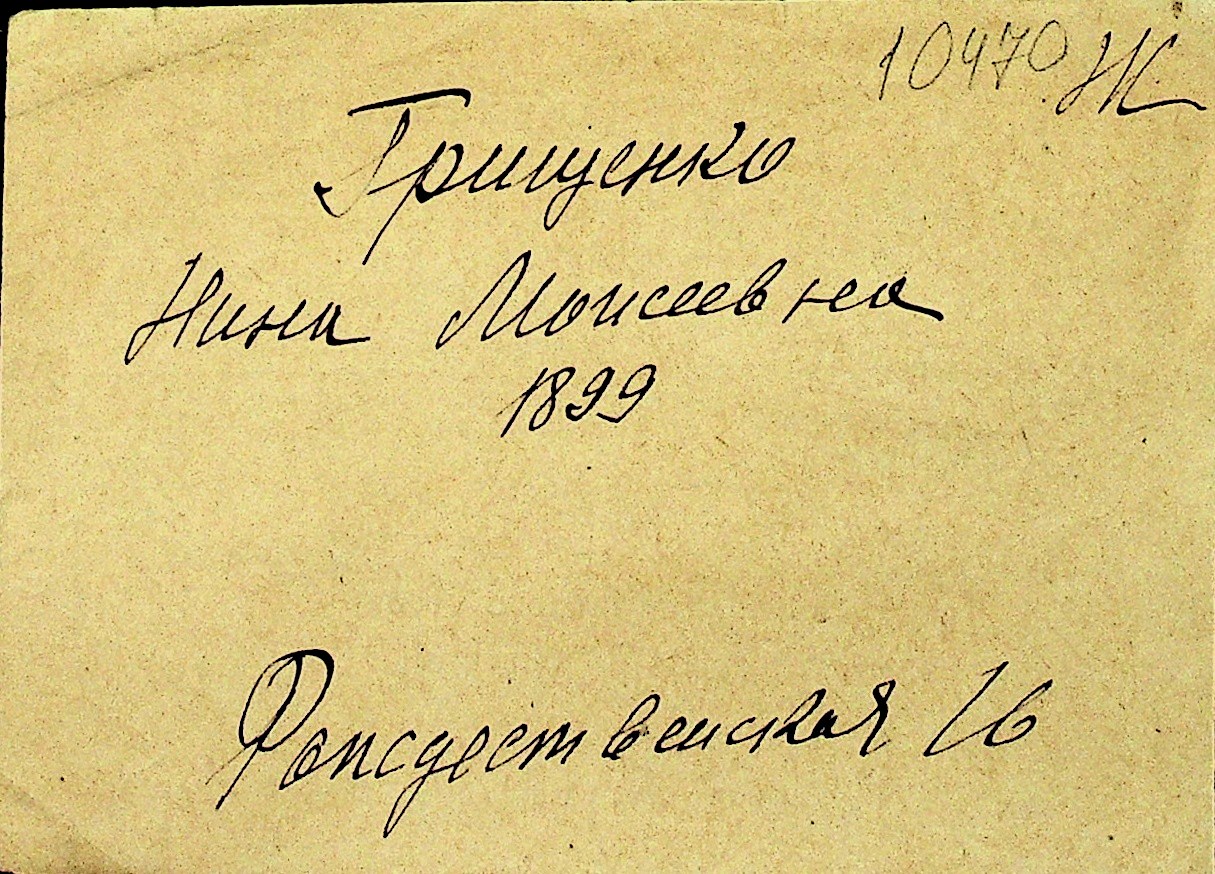 10470 Ж
Грищенко
Нина Моисеевна
1899
Рождественская 16